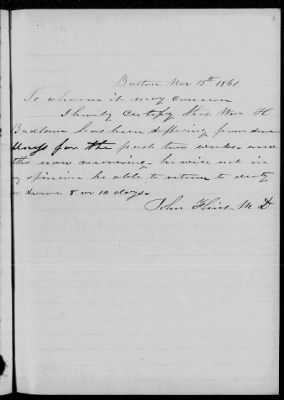 Boston Nov 15th 1861
To whom it may concern
I hereby certify that Wm H
has been suffering from
for the past two weeks and
is now he will not in
my opinion be able to return to duty
8 or 10 days.
John M D